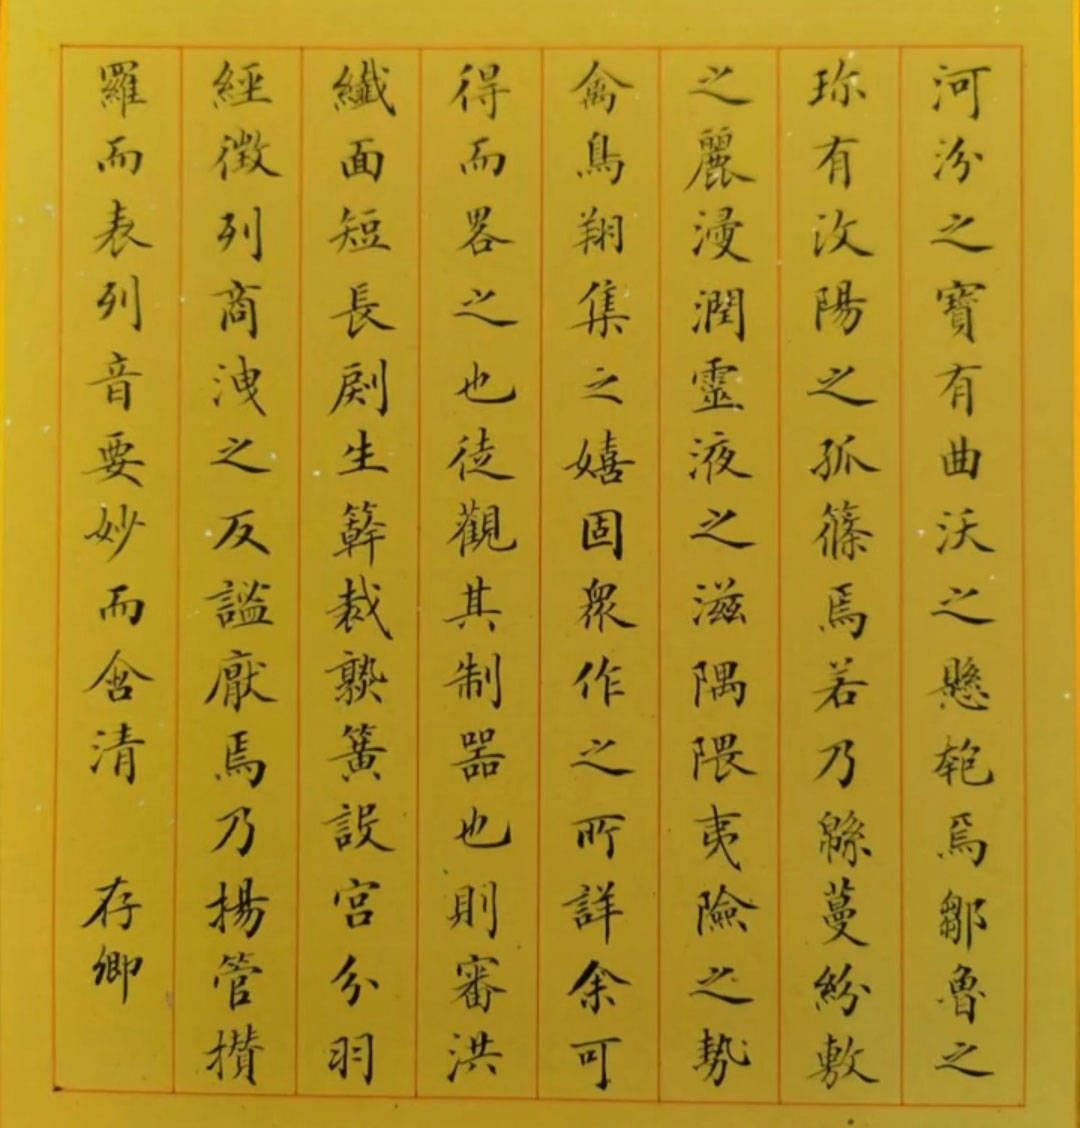 河汾之寶有曲沃之懸匏焉鄒魯之
珎有汶陽之孤篠焉若乃緜蔓紛敷
之麗浸潤靈液之滋隅隈夷險之勢
禽鳥翔集之嬉固衆作之所詳余可
得而畧之也徒觀其制器也則審洪
纖面短長剧生簳裁熟簧設宮分羽
經徵列商洩之反謐厭焉乃揚管攅
羅而表列音要妙而含清 存卿